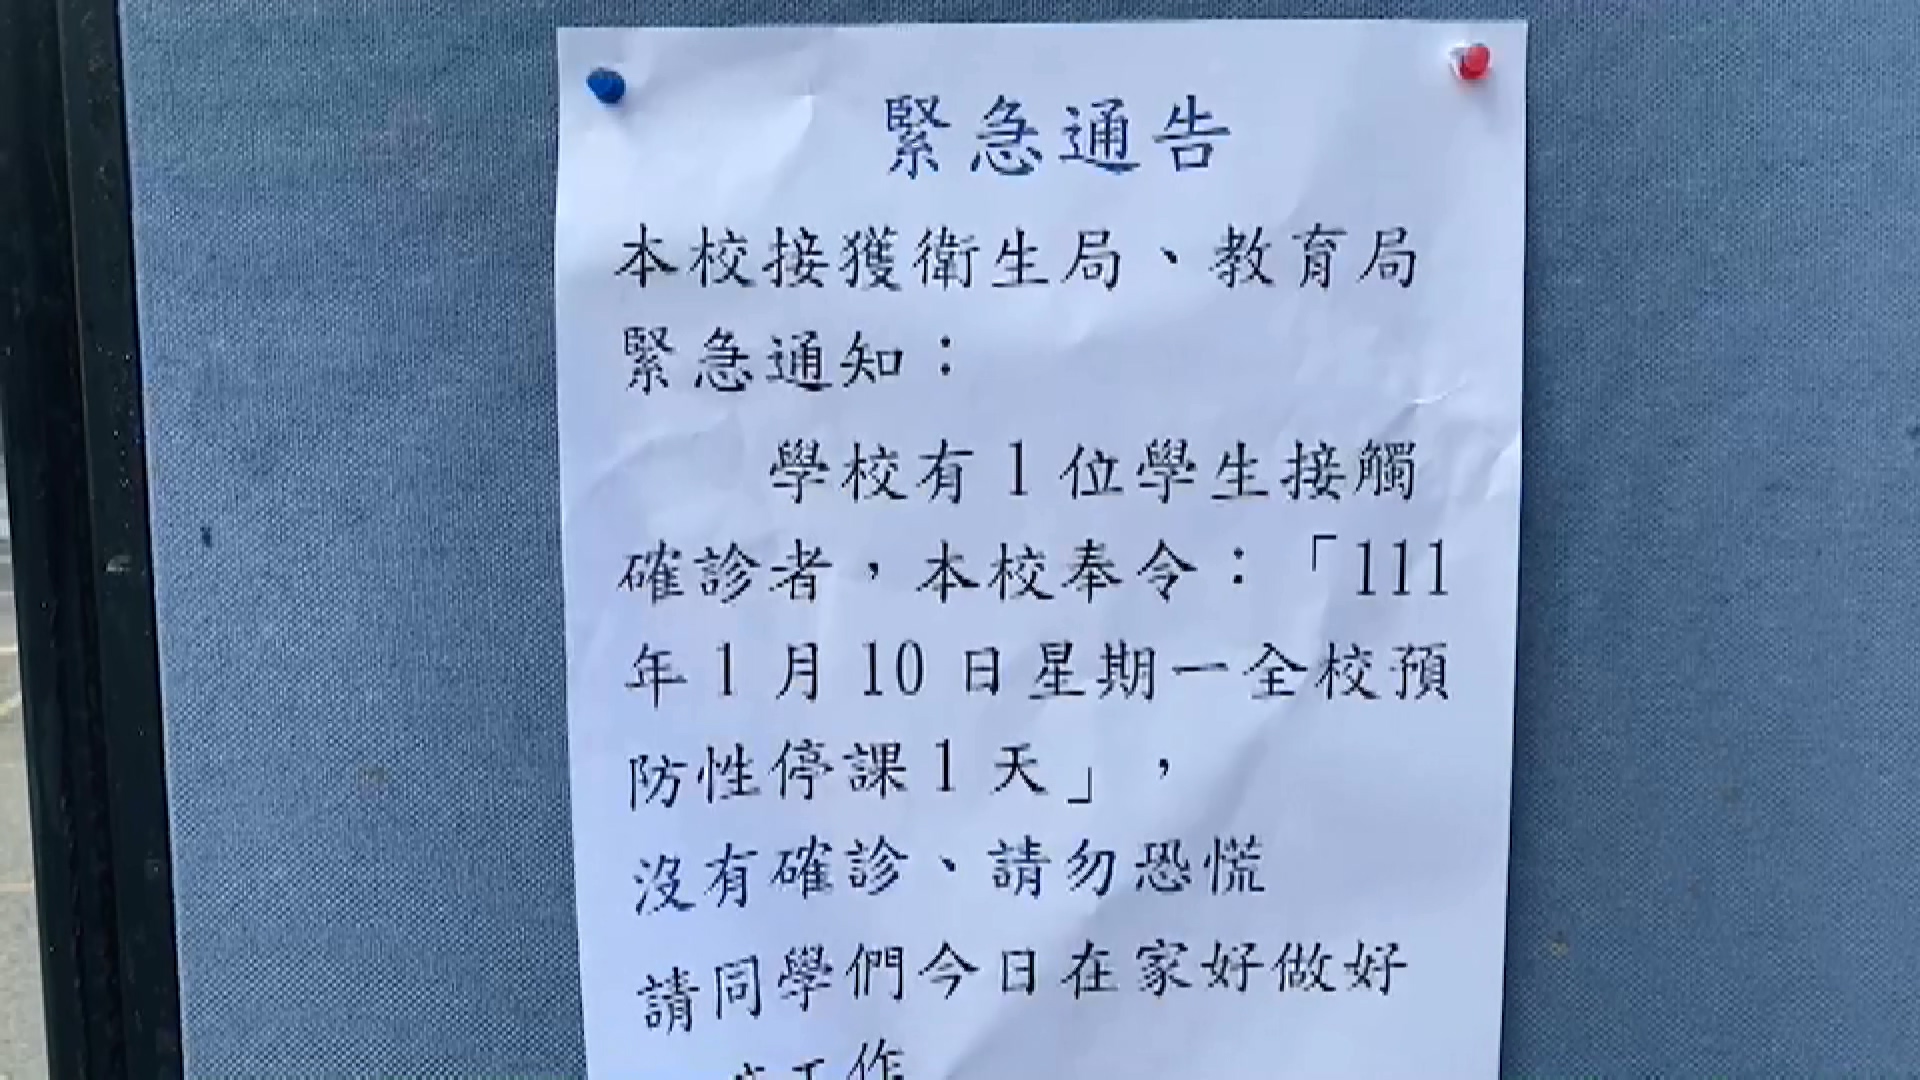 緊急通告
本校接獲衛生局、教育局
緊急通知：
學校有1位學生接觸
確診者，本校奉令：「111
年1月10日星期一全校預
防性停課1天」，
沒有確診、請勿恐慌
請同學們今日在家好做好
工作